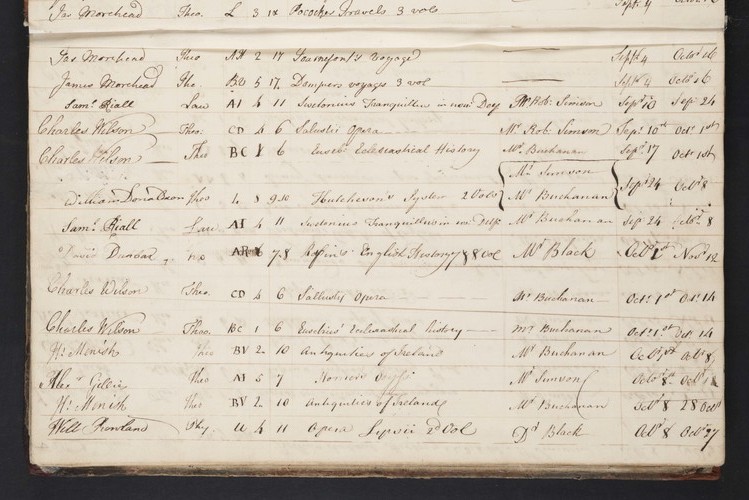 Jas Morehead Theo. L 3 12 Pocockes Travels 3 vols Sept. 4
Jas Morehead Theo AH 2 17 Tournefort's voyage — Sept. 4 Octo. 16
James Morehead Theo. BB 5 17. Dampers voyages 3 vol — Sept. 4 Octo. 16
Saml. Riall Law AI 4 11 Suetonius Tranquillus in usum Delp Mr. Rob. Simson Sepr. 10 Sep. 24
Charles Wilson Theo. CD 4 6 Salustii Opera Mr. Rob. Simson Sep. 10th Oct. 1st
Charles Wilson Theo BC 1 6 Euseb. Eclesiastical History Mr. Buchanan Sepr. 17 Oct. 1st
Theo L 8 9.10 Hutcheson's System 2 Vols Mr. Simson Mr. Buchanan Sepr. 24 Octr. 8
Saml. Riall Law AI 4 11 Suetonius Tranquillus in us: Delp. Mr. Buchanan Sep. 24 Octr. 8
Dundas AR 7.8 Rapin's English History 7 & 8 Vol Mr. Black Octr. 1st Novr. 12
Charles Wilson Theo. CD 4 6 Sallustii Opera Mr. Buchanan Oct. 1st Oct. 14
Charles Wilson Theo. BC 1 6 Eusebius' Eclesiastical history Mr Buchanan Oct. 1st. Oct 14
Hs. Menish Theo BV 2 10 Antiquities of Ireland Mr. Buchanan Octr 1st Octr 8
Alexr Gillies Theo AI 5 7 Mr. Simson Octor 8
Hs. Menish Theo BV 2 10 Antiquities of Ireland Mr Buchanan Octr 8 28 Octr
Will. Rowland Phy. U 4 11 Opera Lipsii 2d Vol Dr Black Octr 8 Octr 27